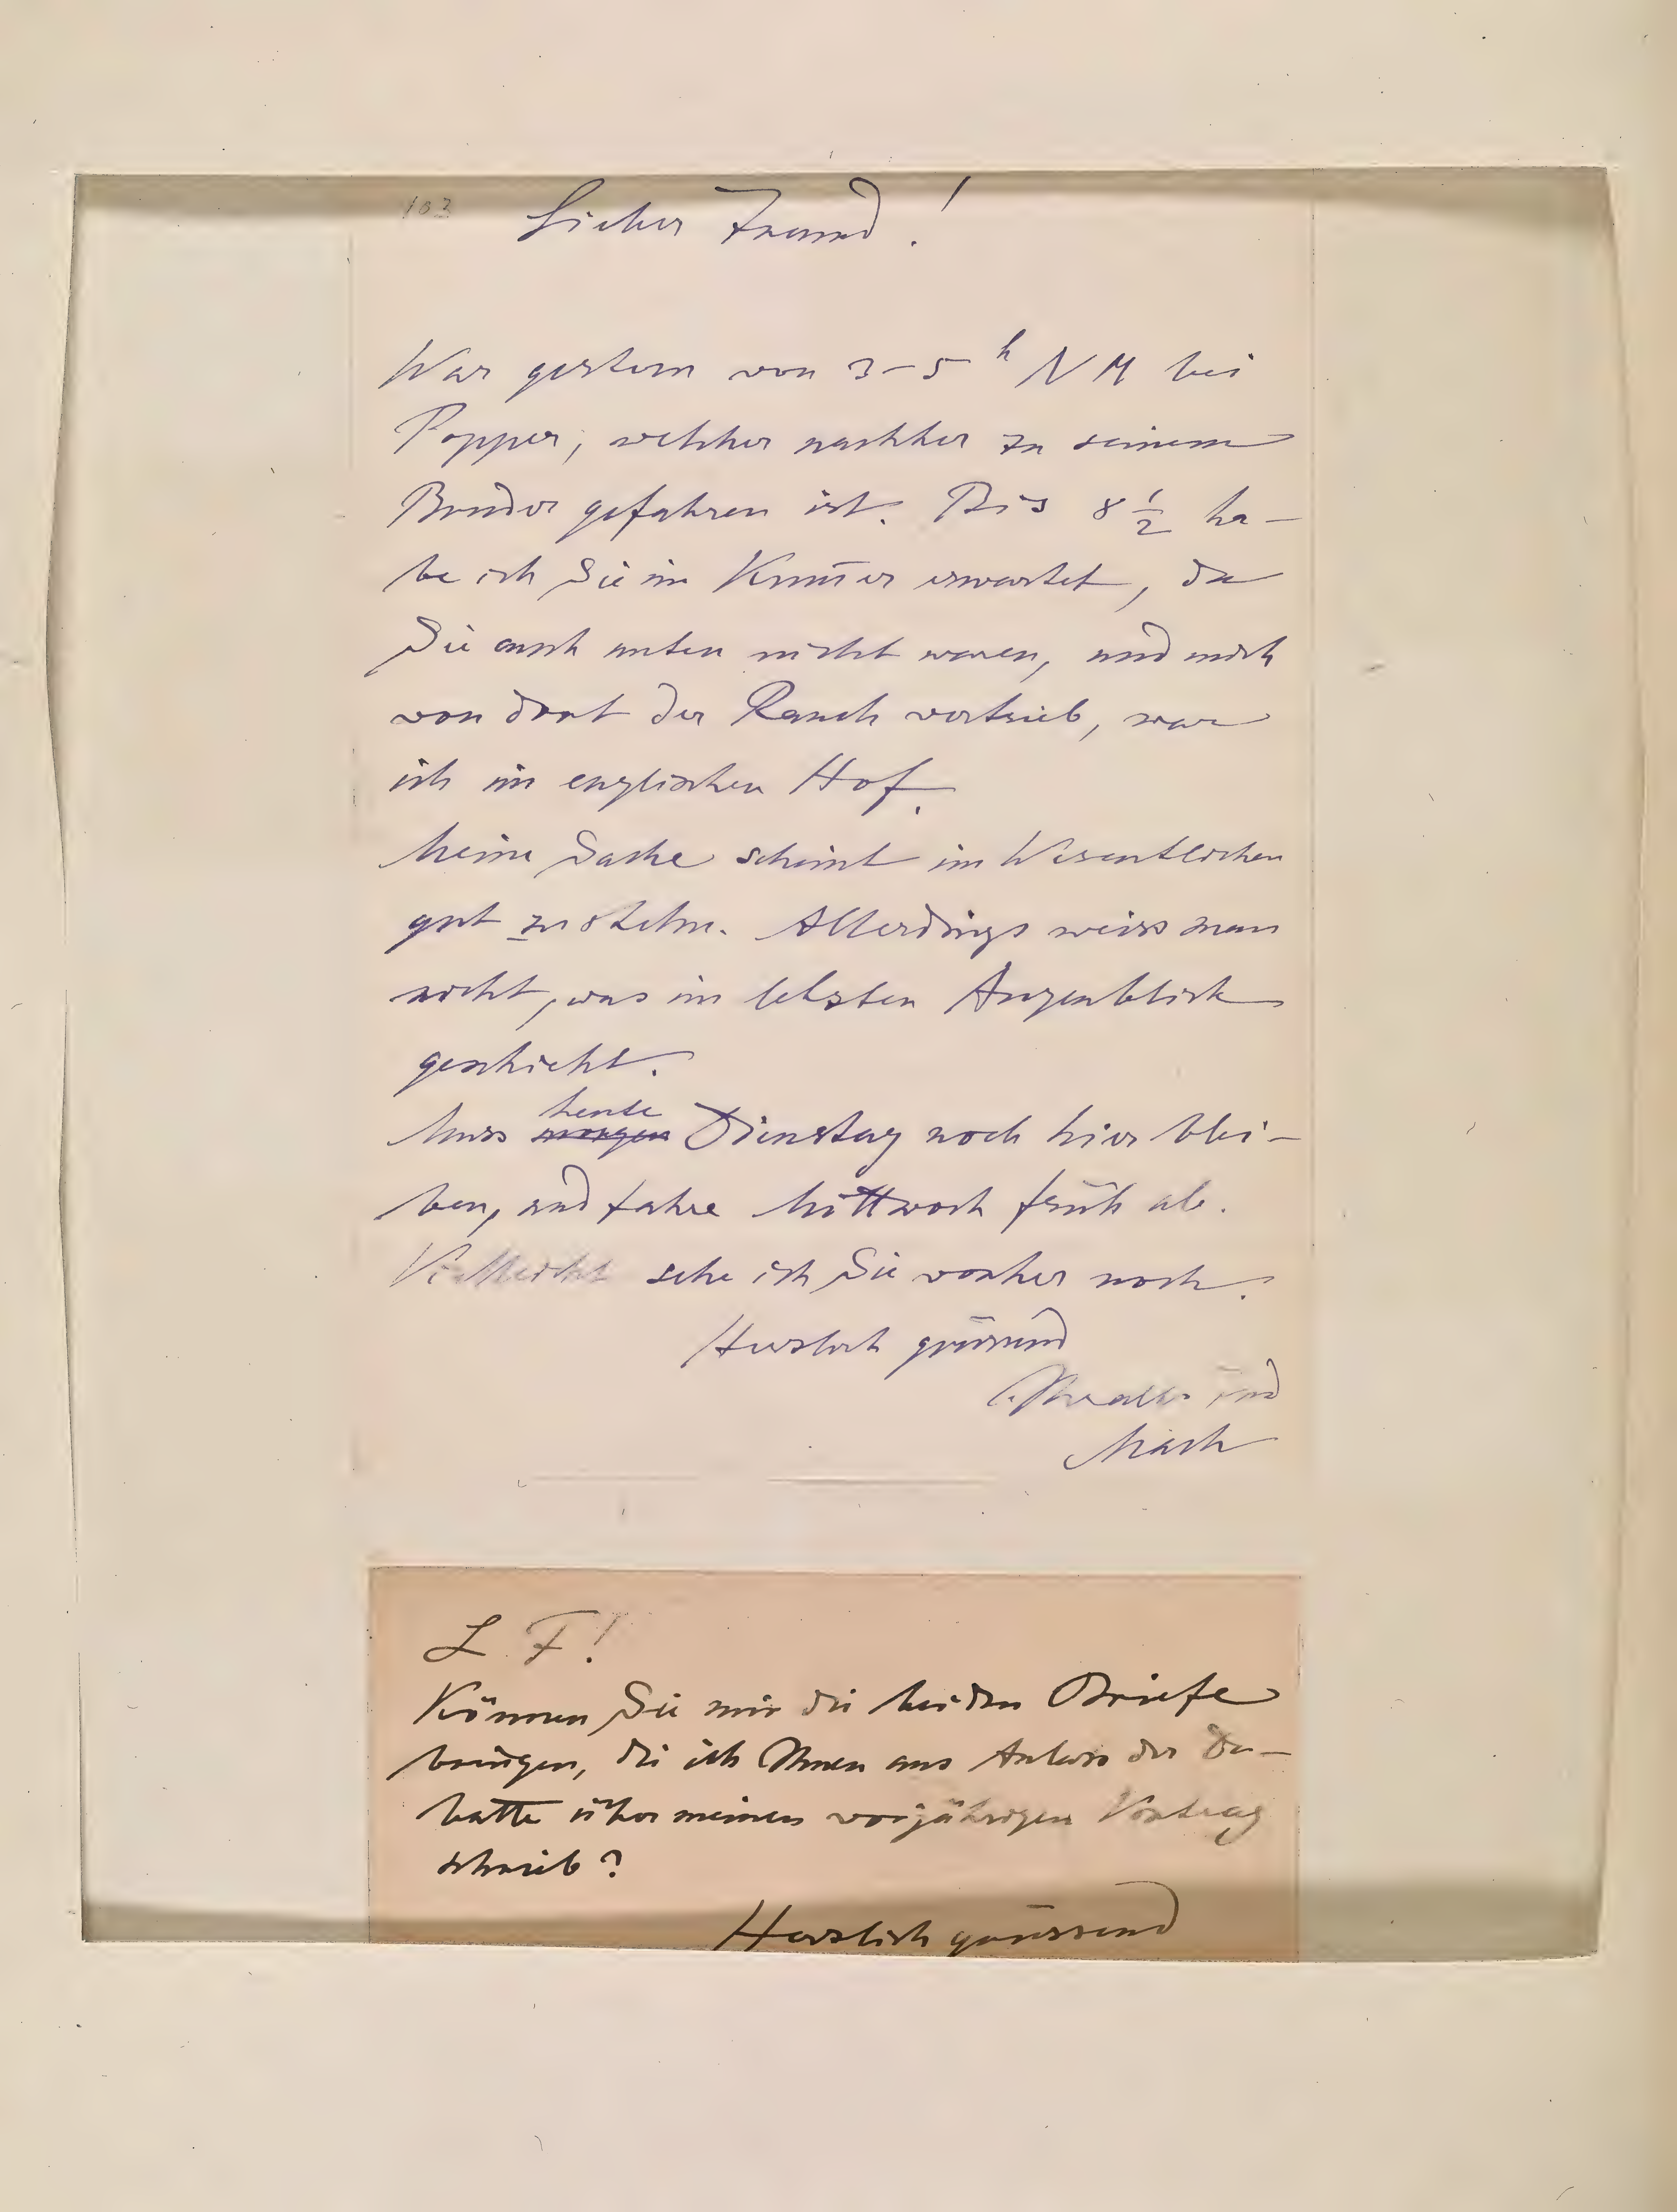 103
Lieber Freund!
War gestern von 3–5 h NM bei
Popper, welcher nachher zu seinem
Bruder gefahren ist. Bis 8 1/2 ha-
be ich Sie im erwartet, da
Sie auch unten nicht waren, und mich
von dort der Rauch vertrieb, war
ich im englischen Hof.
Meine Sache scheint im Wesentlichen
gut zu stehn. Allerdings weiss man
nicht, was im letzten Augenblick
geschieht.
heute
Muss morgen Dienstag noch hier blei-
ben, und fahre Mittwoch früh ab.
Vielleicht sehe ich Sie vorher noch.
Herzlich grüssend
Mach
L. F!
Können Sie mir die beiden Briefe
bringen, die ich Ihnen aus Anlass der De-
batte über meinen vorjährigen Vortrag
schrieb?
Herzlich grüssend